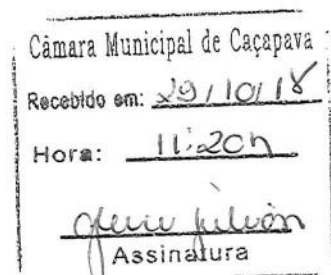 Câmara Municipal de Caçapava
Recebido em: 29/10/18
Hora: 11:20h
Assinatura